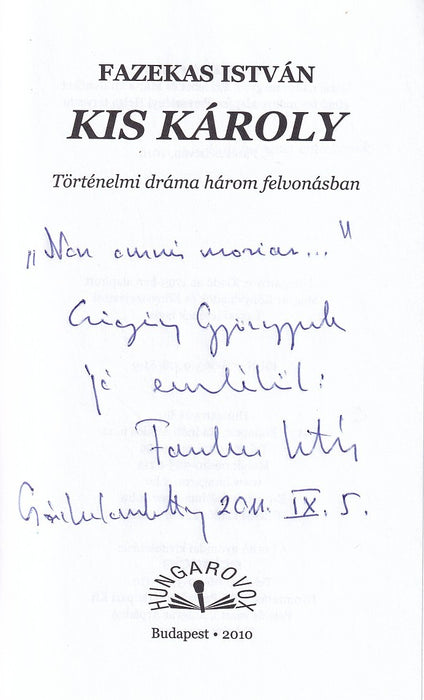 FAZEKAS ISTVÁN
KIS KÁROLY
Történelmi dráma három felvonásban
„Non omnis moriar..."
György
jó emlékül:
Fazekas István
2011. IX. 5.
HUNGAROVOX
Budapest • 2010